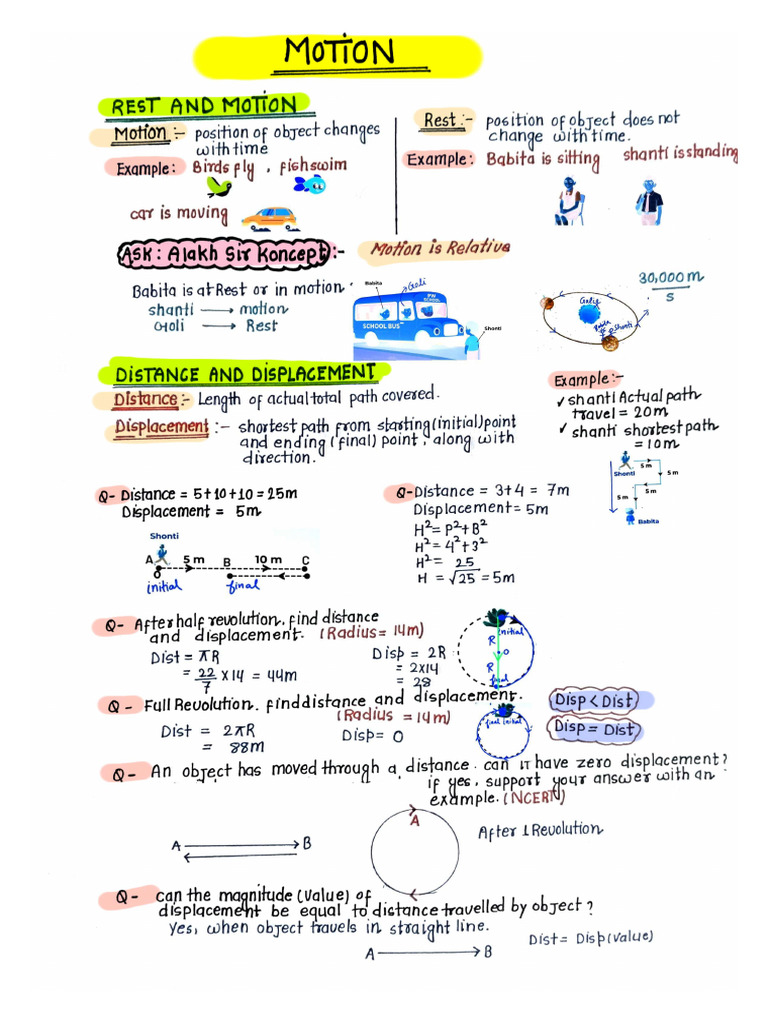 MOTION
REST AND MOTION
Motion :- position of object changes
with time
Example: Birds fly , fish swim
car is moving
Rest :- position of object does not
change with time.
Example: Babita is sitting shanti is standing
Ask: Alakh Sir Koncept :- Motion is Relative
Babita is at Rest or in motion.
shanti → motion
Goli → Rest
Babita
Goli
PW
SCHOOL
SCHOOL BUS
Shonti
30,000 m
s
Babita
Shonti
DISTANCE AND DISPLACEMENT
Distance :- Length of actual total path covered.
Displacement :- shortest path from starting (initial) point
and ending (final) point, along with
direction.
Example:-
✓ shanti Actual path
travel = 20m
✓ shanti shortest path
= 10m
5 m
Shonti
5 m
5 m
5 m
Babita
Q- Distance = 5+10+10 = 25m
Displacement = 5m
Shonti
A 5 m B 10 m C
O
initial final
Q- Distance = 3+4 = 7m
Displacement = 5m
H²= P²+B²
H² = 4²+3²
H² = 25
H = √25 = 5m
Q- After half revolution, find distance
and displacement. (Radius = 14m)
Dist = πR
= 22/7 x14 = 44m
Disp = 2R
= 2x14
= 28
initial
R
O
R
final
Q- Full Revolution. find distance and displacement.
(Radius = 14m)
Dist = 2πR
= 88m
Disp= 0
final initial
Disp < Dist
Disp = Dist
Q- An object has moved through a distance. can it have zero displacement?
if yes, support your answer with an
example. (NCERT)
A B
A
After 1 Revolution
Q- can the magnitude (Value) of
displacement be equal to distance travelled by object?
Yes, when object travels in straight line.
A → B
Dist = Disp (value)